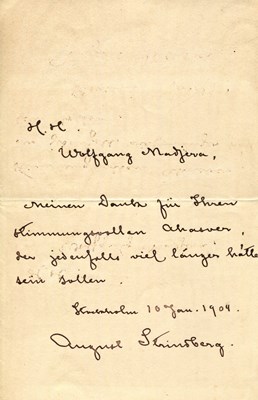 H. H.
Wolfgang Madjera,
Meinen Dank für Ihren
stimmungsvollen Ahasver,
der jedenfalls viel länger hätte
sein sollen.
Stockholm 10 Jan. 1904.
August Strindberg.